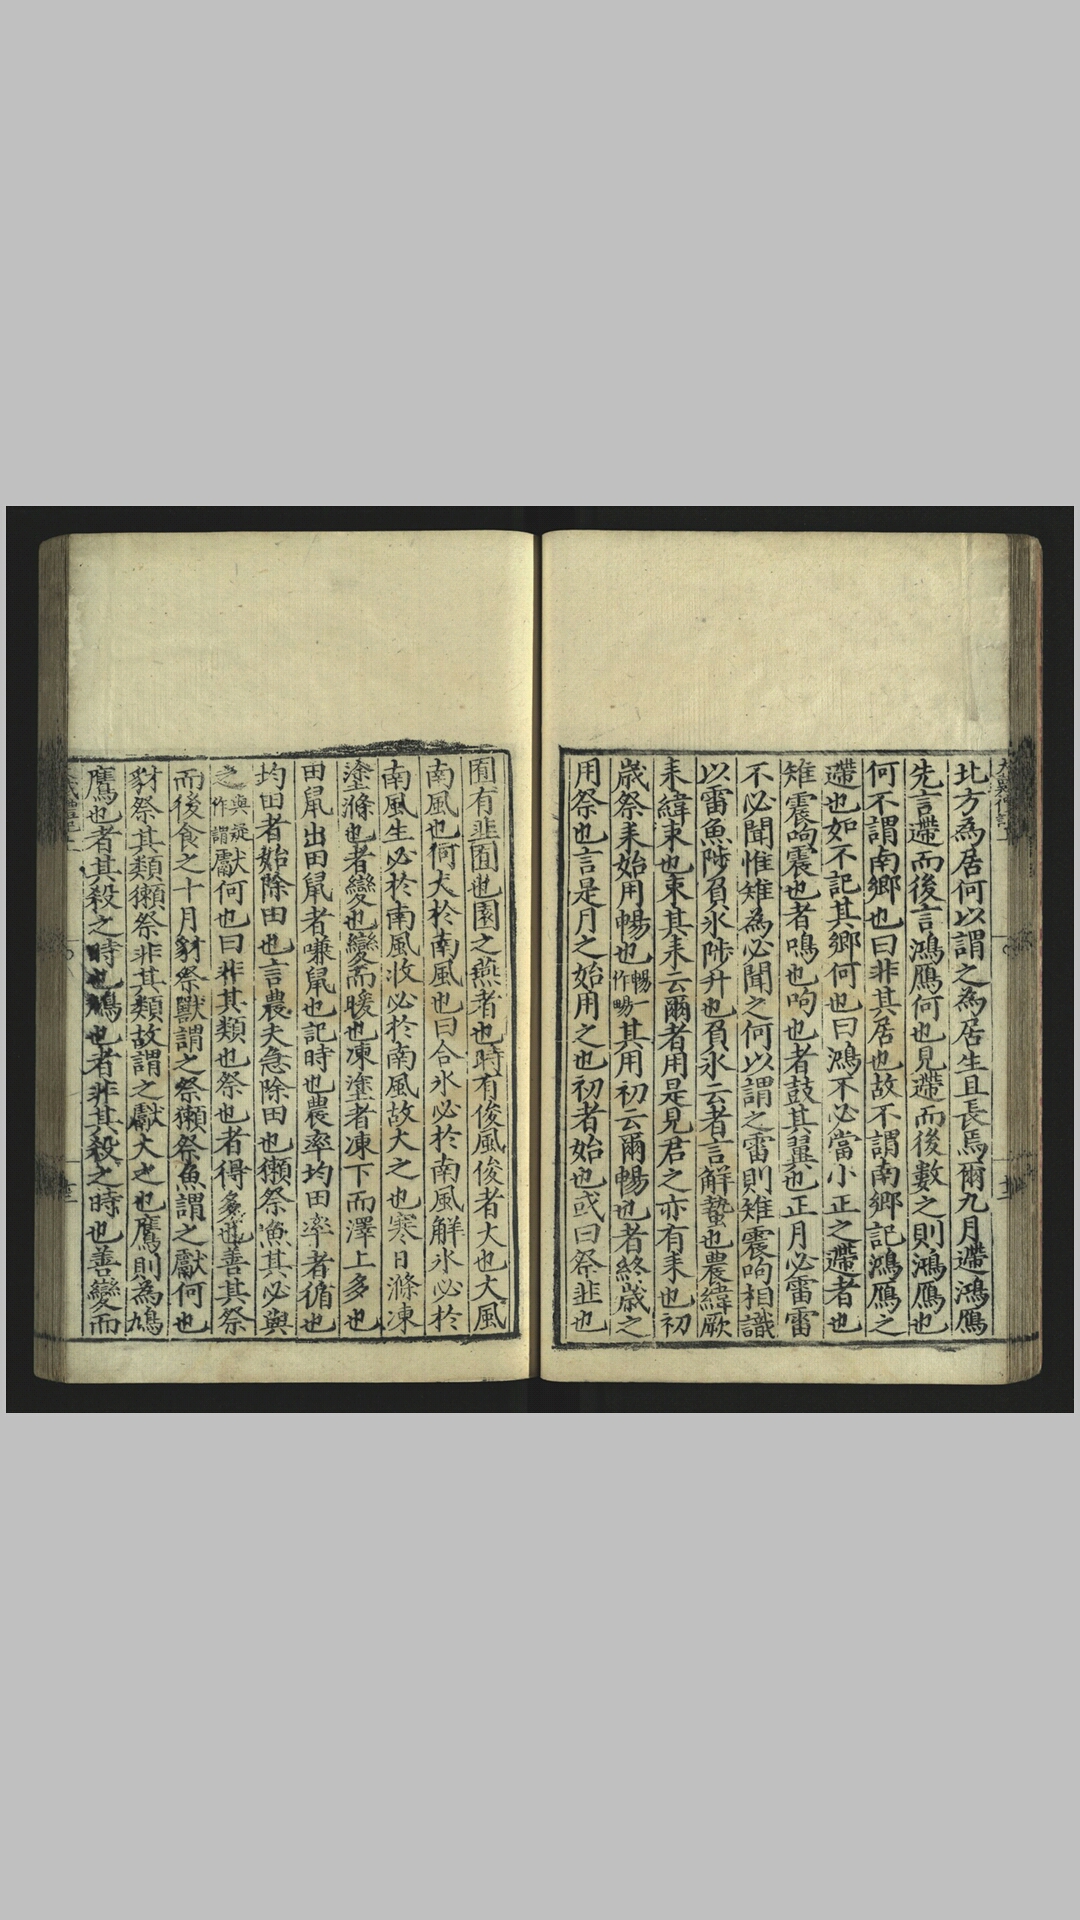 北方為居何以謂之為居生且長焉爾九月遰鴻鴈
先言遰而後言鴻鴈何也見遰而後數之則鴻鴈也
何不謂南鄉也曰非其居也故不謂南鄉記鴻鴈之
遰也如不記其鄉何也曰鴻不必當小正之遰者也
雉震呴震也者鳴也呴也者鼓其翼也正月必雷雷
不必聞惟雉為必聞之何以謂之雷則雉震呴相識
以雷魚陟負氷陟升也負氷云者言解蟄也農緯厥
耒緯束也束其耒云爾者用是見君之亦有耒也初
歲祭耒始用暢也暢一作畼其用初云爾暢也者終歲之
用祭也言是月之始用之也初者始也或曰祭韭也
囿有韭囿也園之燕者也時有俊風俊者大也大風
南風也何大於南風也曰合氷必於南風解氷必於
南風生必於南風收必於南風故大之也寒日滌凍
塗滌也者變也變而暖也凍塗者凍下而澤上多也
田鼠出田鼠者嗛鼠也記時也農率均田率者循也
均田者始除田也言農夫急除田也獺祭魚其必與
之與疑作謂獻何也曰非其類也祭也者得多也善其祭
而後食之十月豺祭獸謂之祭獺祭魚謂之獻何也
豺祭其類獺祭非其類故謂之獻大之也鷹則為鳩
鷹也者其殺之時也鳩也者非其殺之時也善變而